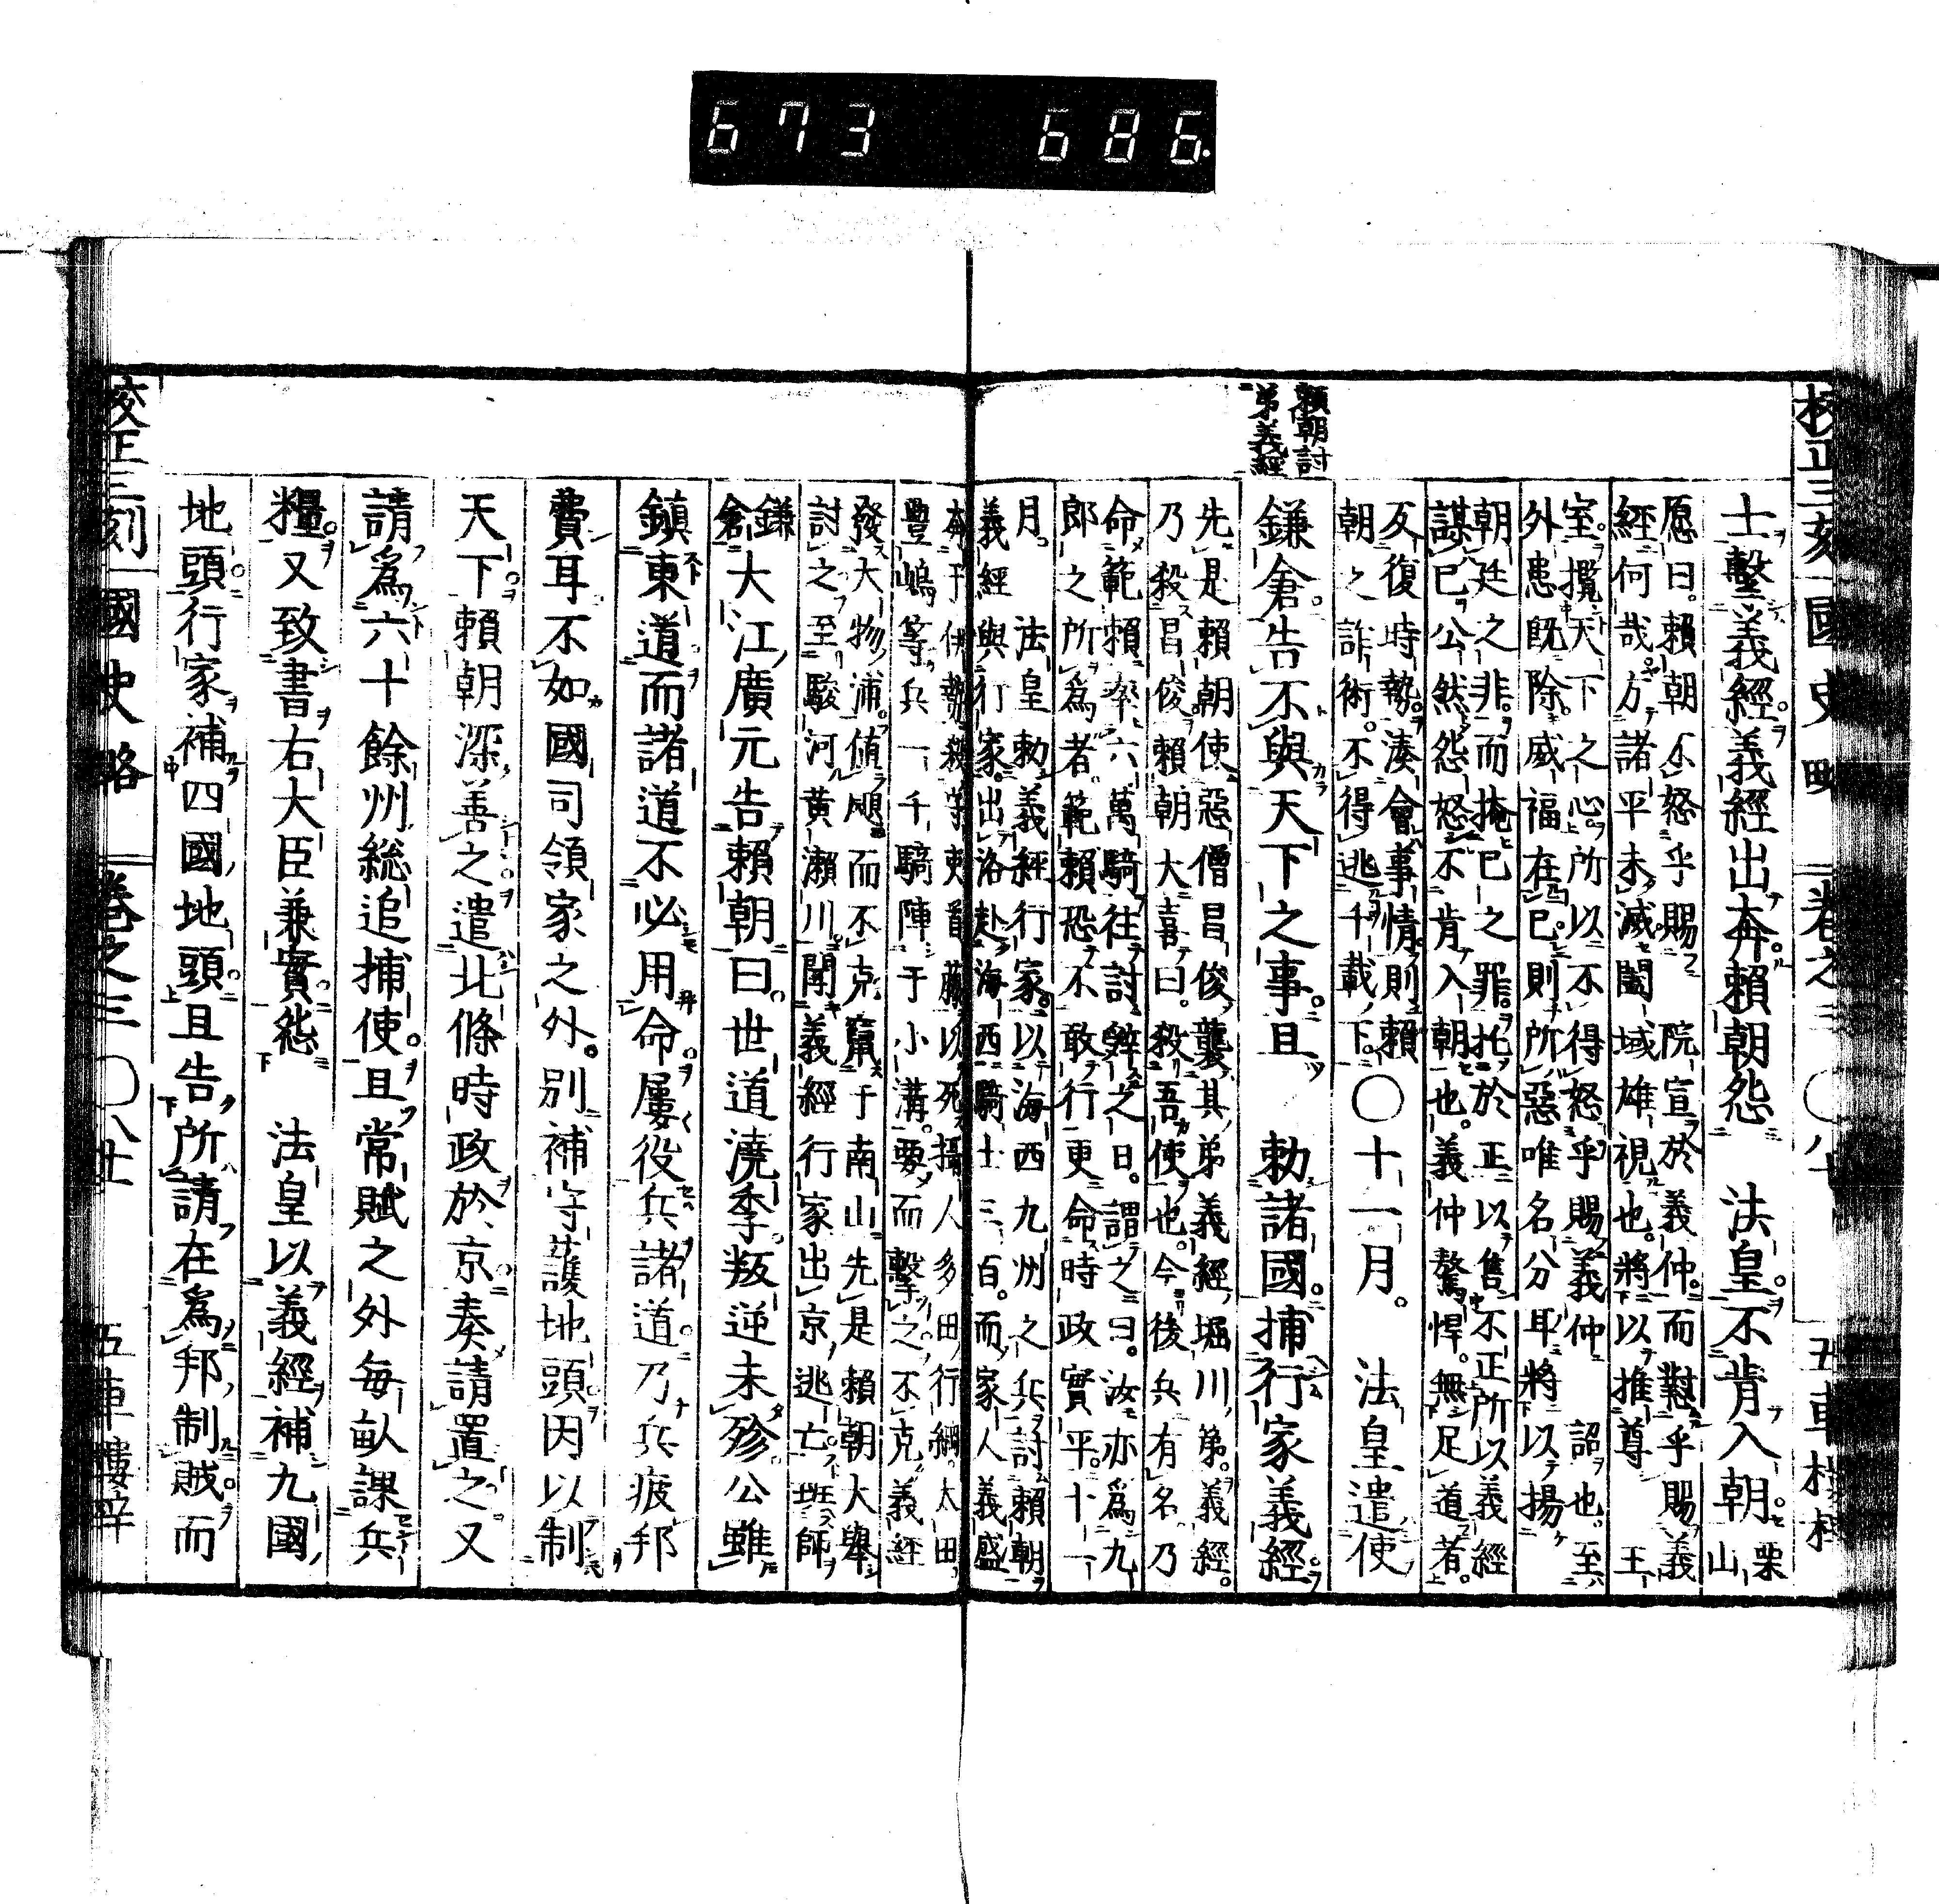 673 686
校正三刻 國史略 卷之三 〇八十 五車樓梓
頼朝討
弟義經
士擊義經義經出奔頼朝怨 法皇不肯入朝栗
山
愿曰頼朝不怒乎賜 院宣於義仲而懟乎賜義
經何哉方諸平未滅闔域雄視也將以推尊 王
室攬天下之心所以不得怒乎賜義仲 詔也至
外患既除威福在已則所惡唯名分耳將以揚
朝廷之非而掩已之罪托於正以售不正所以義經
謀已公然怨怒不肯入朝也義仲驁悍無足道者
反復時勢湊會事情則頼
朝之詐術不得逃千載下〇十一月 法皇遣使
鎌倉告不與天下之事且 勅諸國捕行家義經
先是頼朝使惡僧昌俊襲其弟義經堀川第義經
乃殺昌俊頼朝大喜曰殺吾使也今後兵有名乃
命範頼率六萬騎往討辭之日謂之曰汝亦爲九
郎之所爲者範頼恐不敢行更命時政實平十一
月 法皇勅義經行家以海西九州之兵討頼朝
義經與行家出洛赴海西騎士三百而家人義盛
奔于伊勢殺守吏首藤以死攝人多田行綱太田
豊嶋等兵一千騎陣于小溝要而擊之不克義經
發大物浦偵颶而不克竄于南山先是頼朝大舉
討之至駿河黄瀬川聞義經行家出京逃亡班師
鎌
倉大江廣元告頼朝曰世道澆季叛逆未殄公雖
鎮東道而諸道不必用命屢役兵諸道乃兵疲邦
費耳不如國司領家之外別補守護地頭因以制
天下頼朝深善之遣北條時政於京奏請置之又
請爲六十餘州総追捕使且常賦之外毎畝課兵
糧又致書右大臣兼實怨 法皇以義經補九國
地頭行家補四國地頭且告所請在爲邦制賊而
校正三刻 國史略 卷之三 〇八廿 五車樓梓